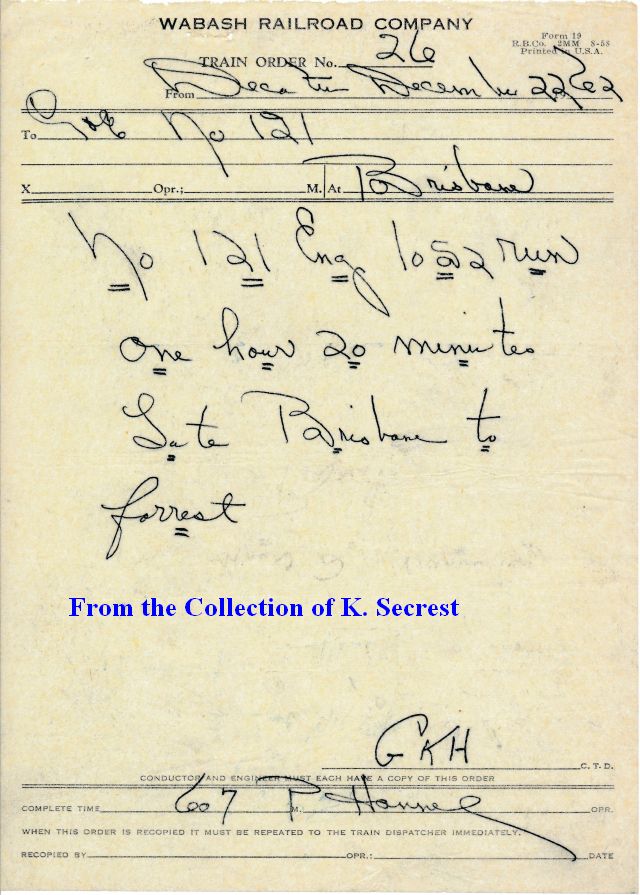 WABASH RAILROAD COMPANY
Form 19
R.B.Co. 2MM 8-58
Printed in U.S.A.
TRAIN ORDER No. 26
From Decatur December 22 62
To No 121
X Opr.; M. At Brisbane
No 121 Eng 1052 run
one hour 20 minutes
Late Brisbane to
Forrest
From the Collection of K. Secrest
GKH C. T. D.
CONDUCTOR AND ENGINEER MUST EACH HAVE A COPY OF THIS ORDER
COMPLETE TIME 607 P M. OPR.
WHEN THIS ORDER IS RECOPIED IT MUST BE REPEATED TO THE TRAIN DISPATCHER IMMEDIATELY.
RECOPIED BY OPR.: DATE